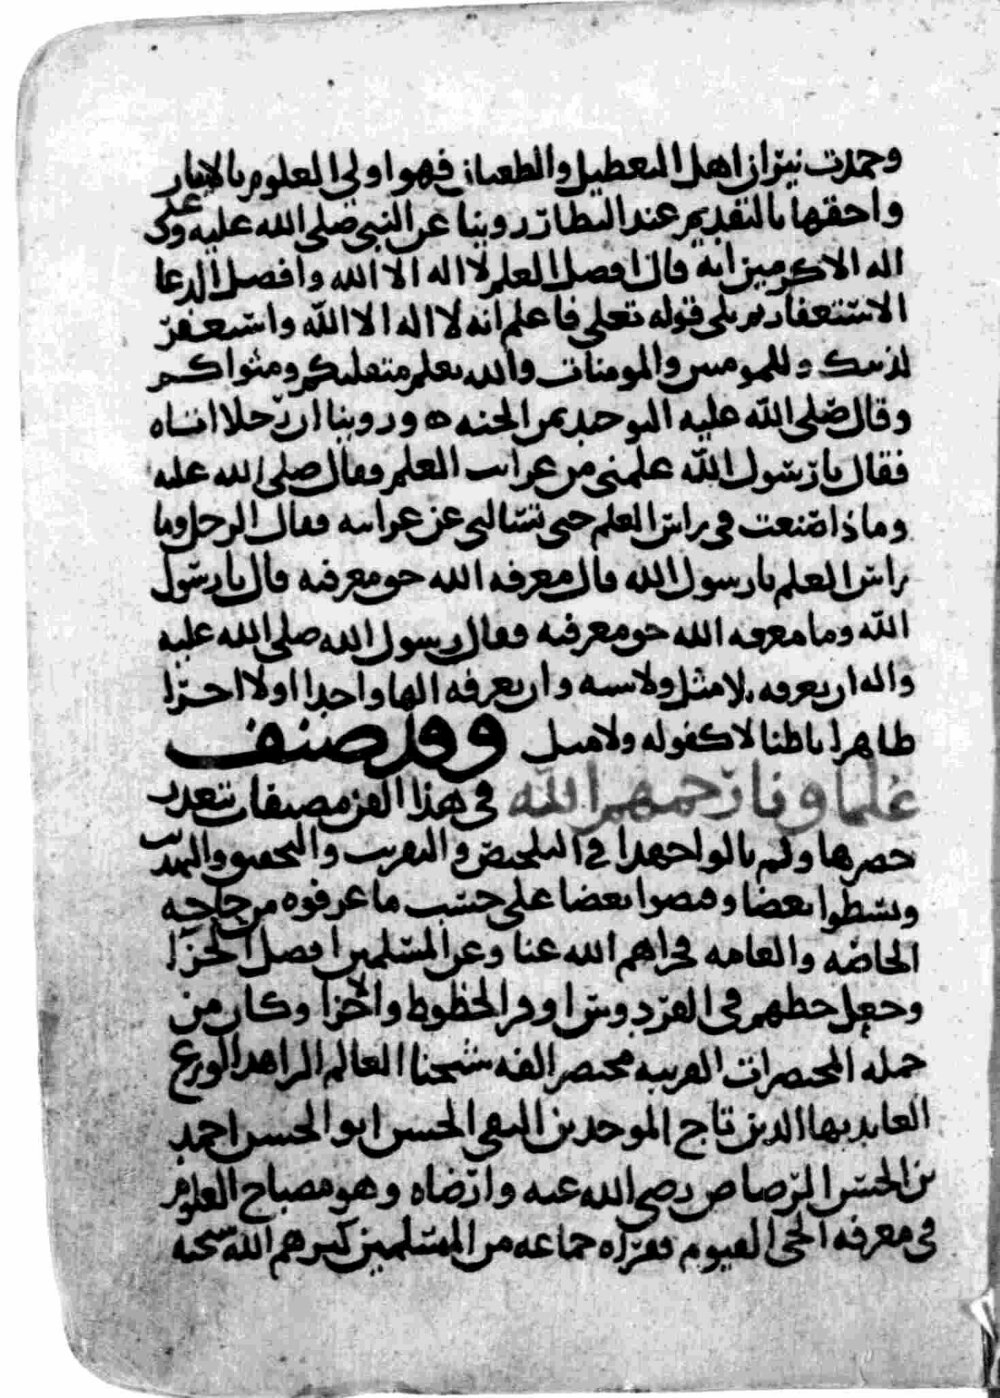 وخمدت نيران اهل التعطيل والطغيان فهو اولى العلوم بالايثار
واحقها بالتقديم عند النظار روينا عن النبي صلى الله عليه وعلى
اله الاكرمين انه قال افضل العلم لا اله الا الله وافضل الدعا
الاستغفار ثم تلى قوله تعلى فاعلم انه لا اله الا الله واستغفر
لذنبك وللمومنين والمومنات والله يعلم متقلبكم ومثواكم
وقال صلى الله عليه التوحيد ثمن الجنه ه وروينا ان رجلا اتاه
فقال يا رسول الله علمني من غرائب العلم فقال صلى الله عليه
وماذا صنعت في راس العلم حتى تسالني عن غرائبه فقال الرجل وما
راس العلم يا رسول الله قال معرفه الله حق معرفته قال يا رسول
الله وما معرفه الله حق معرفته فقال رسول الله صلى الله عليه
واله ان يعرفه بلا مثل ولا شبيه وان يعرفه الها واحدا اولا اخرا
ظاهرا باطنا لا كفو له ولا مثل وقد صنف
علماونا رحمهم الله في هذا الفن مصنفات يتعذر
حصرها ولم يالوا جهدا في التلخيص والتقريب والتحقيق والتهذيب
وبسطوا بعضا وقصروا بعضا على حسب ما عرفوه من حاجه
الخاصه والعامه فجزاهم الله عنا وعن المسلمين افضل الجزا
وجعل حظهم في الفردوس اوفر الحظوظ والاجزا وكان من
جمله المختصرات القريبه مختصر الفه شيخنا العالم الزاهد الورع
العابد بها الدين تاج الموحدين التقي المحسن ابو الحسن احمد
بن الحسن الرصاص رضي الله عنه وارضاه وهو مصباح العلوم
في معرفه الحي القيوم فقراه جماعه من المسلمين كثرهم الله